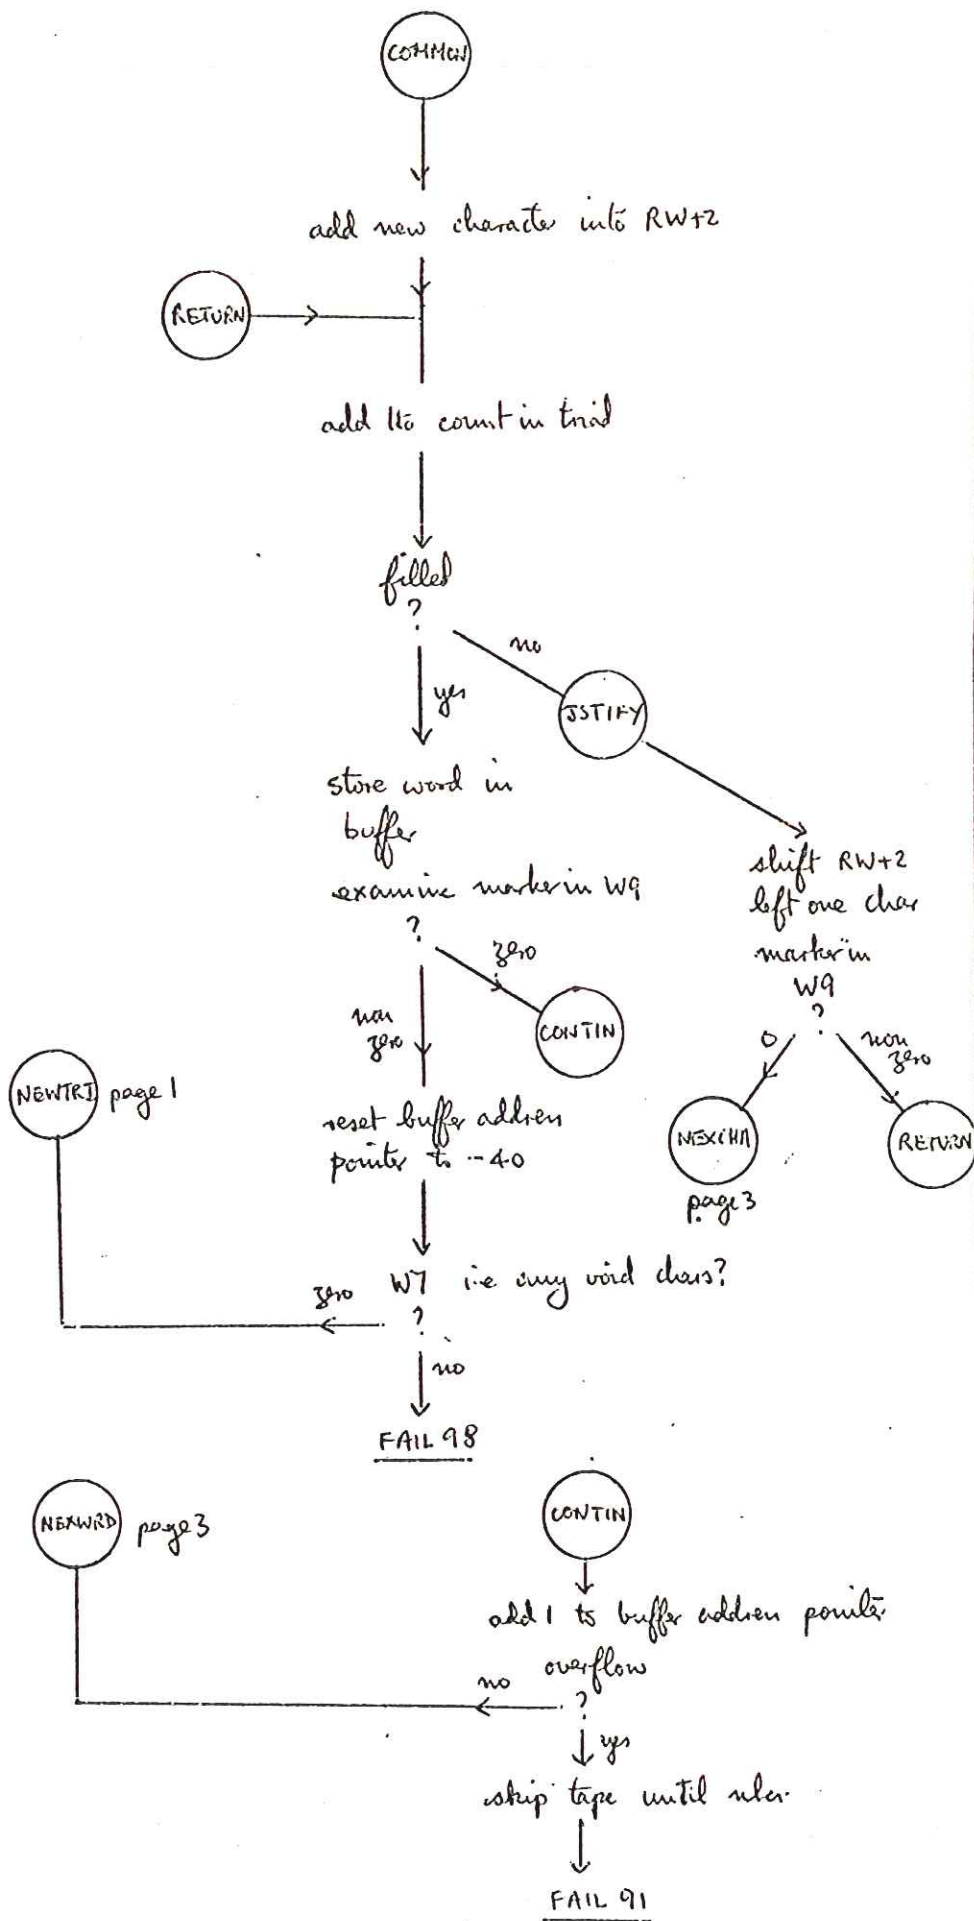 COMMON
add new character into RW+2
RETURN
add 1 to count in triad
filled
?
no
yes
JSTIFY
store word in
buffer
examine marker in W9
?
zero
non
zero
CONTIN
shift RW+2
left one char
marker in
W9
?
0
non
zero
NEXCHA
page 3
RETURN
NEWTRI page 1
reset buffer address
pointer to -40
W7 i.e any void chars?
zero
?
no
FAIL 98
NEXWRD page 3
CONTIN
add 1 to buffer address pointer
overflow
no
?
yes
skip tape until
FAIL 91